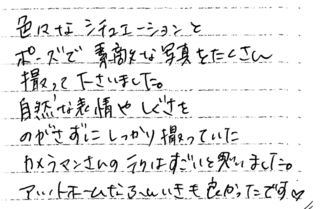 色々なシチュエーションと
ポーズで素敵な写真をたくさん
撮って下さいました。
自然な表情やしぐさを
のがさずにしっかり撮っていた
カメラマンさんのうではすごいと思いました。
アットホームなふんいきも良かったです♡